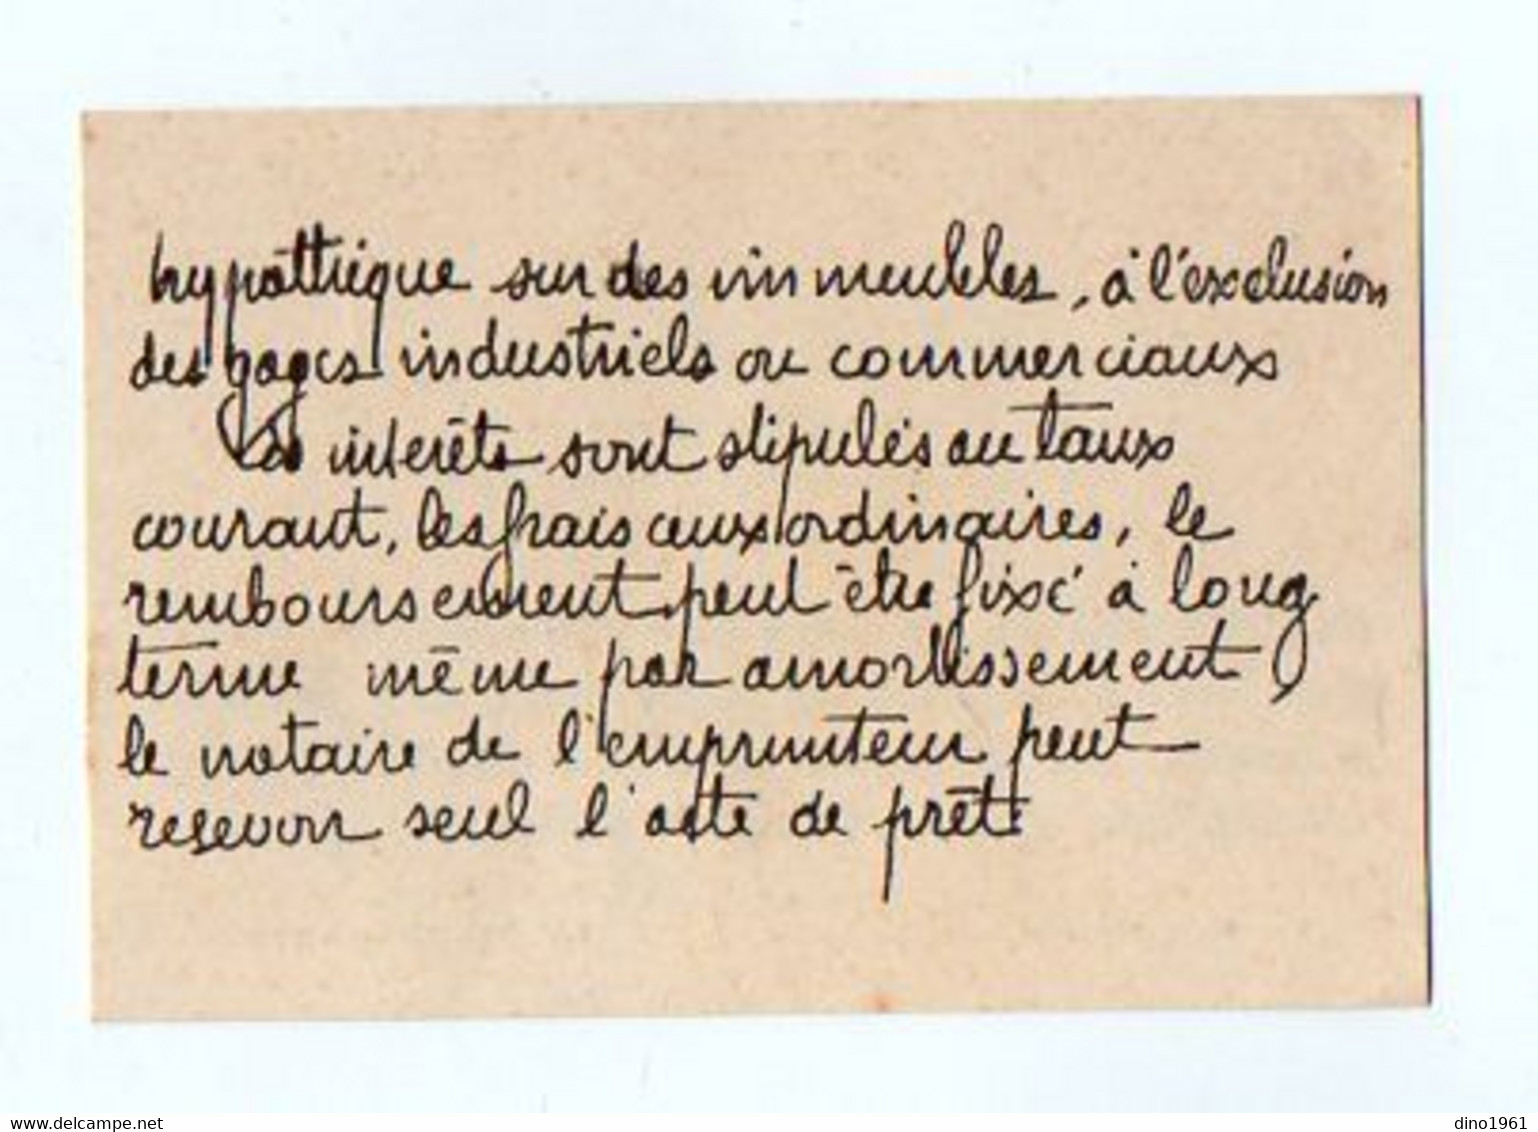 hypothéque sur des immeubles, à l'exclusion
des gages industriels ou commerciaux
Les intérêts sont stipulés au taux
courant, les frais ceux ordinaires, le
remboursement peut être fixé à long
terme même par amortissement,
le notaire de l'emprunteur peut
resevoir seul l'acte de prêt.
dino1961